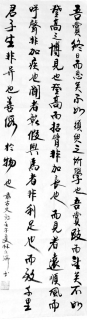 吾嘗終日而思矣不如須臾之所學也吾嘗跂而望矣不如
登高之博見也登高而招臂非加長也而見者遠順風而
呼聲非加疾也而聞者彰假輿馬者非利足也而致千里
君子生非異也善假於物也